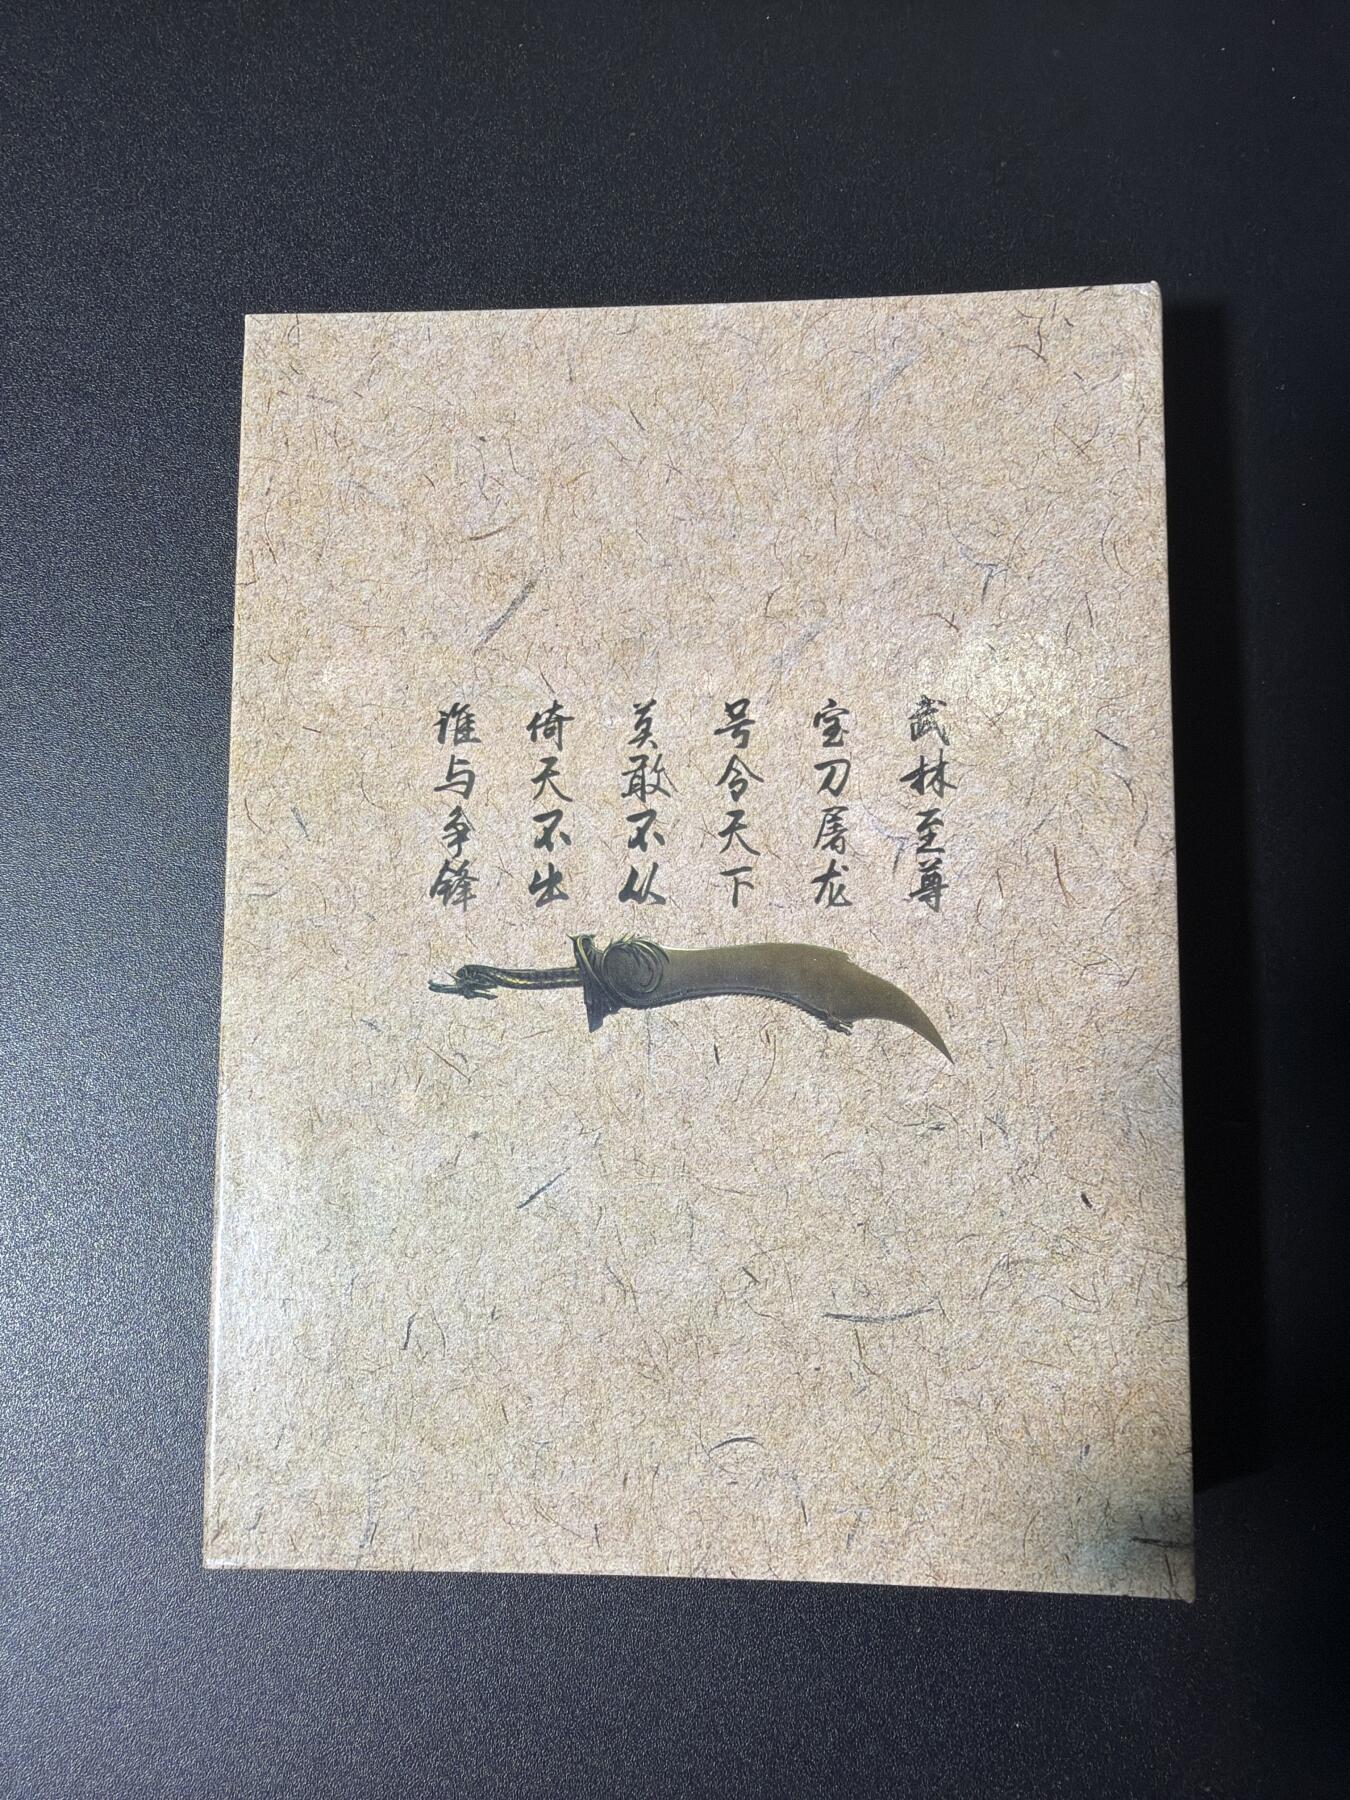 武林至尊
宝刀屠龙
号令天下
莫敢不从
倚天不出
谁与争锋